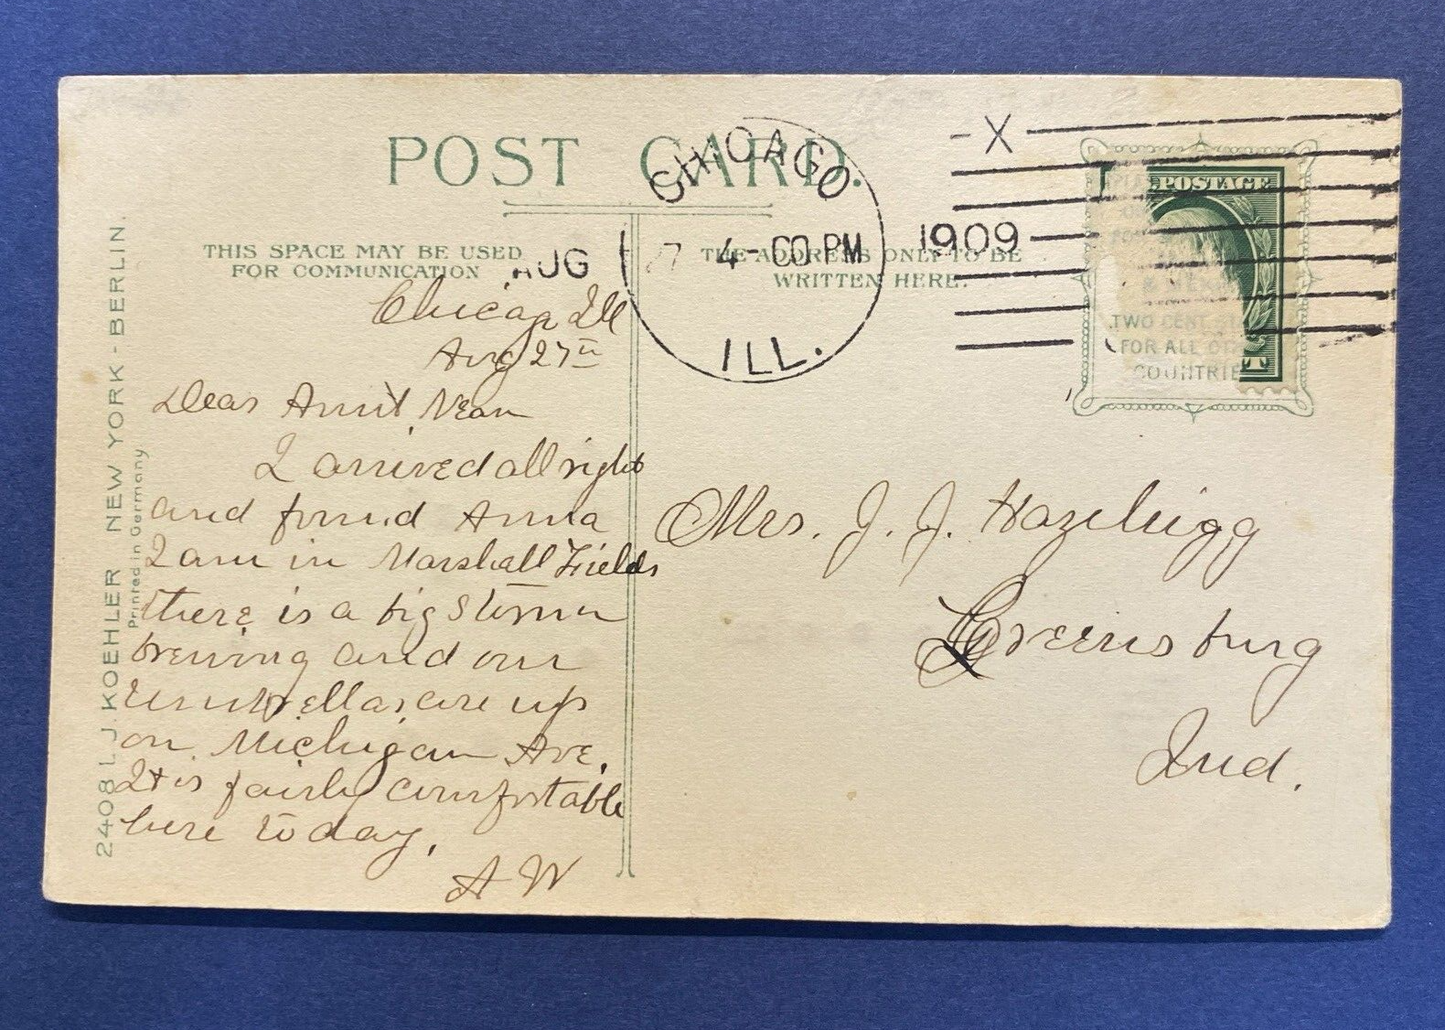 POST CARD.
THIS SPACE MAY BE USED
FOR COMMUNICATION
THE ADDRESS ONLY TO BE
WRITTEN HERE.
CHICAGO
AUG 27 4-00 PM
ILL.
X
1909
POSTAGE
TWO CENT
FOR ALL
COUNTRIE
Chicago Ill
Aug 27th
Dear Aunt
I arrived all right
and found Anna
I am in Marshall Fields
there is a big storm
brewing and our
umbrellas are up
on Michigan Ave.
It is fairly comfortable
here to day.
A W
Mrs. J. J. Hazelrigg
Greensburg
Ind.
2408 L.J. KOEHLER NEW YORK - BERLIN.
Printed in Germany.